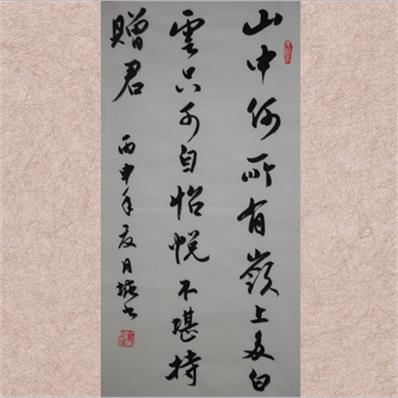 山中何所有嶺上多白
雲只可自怡悅不堪持
贈君
丙申年夏月 書